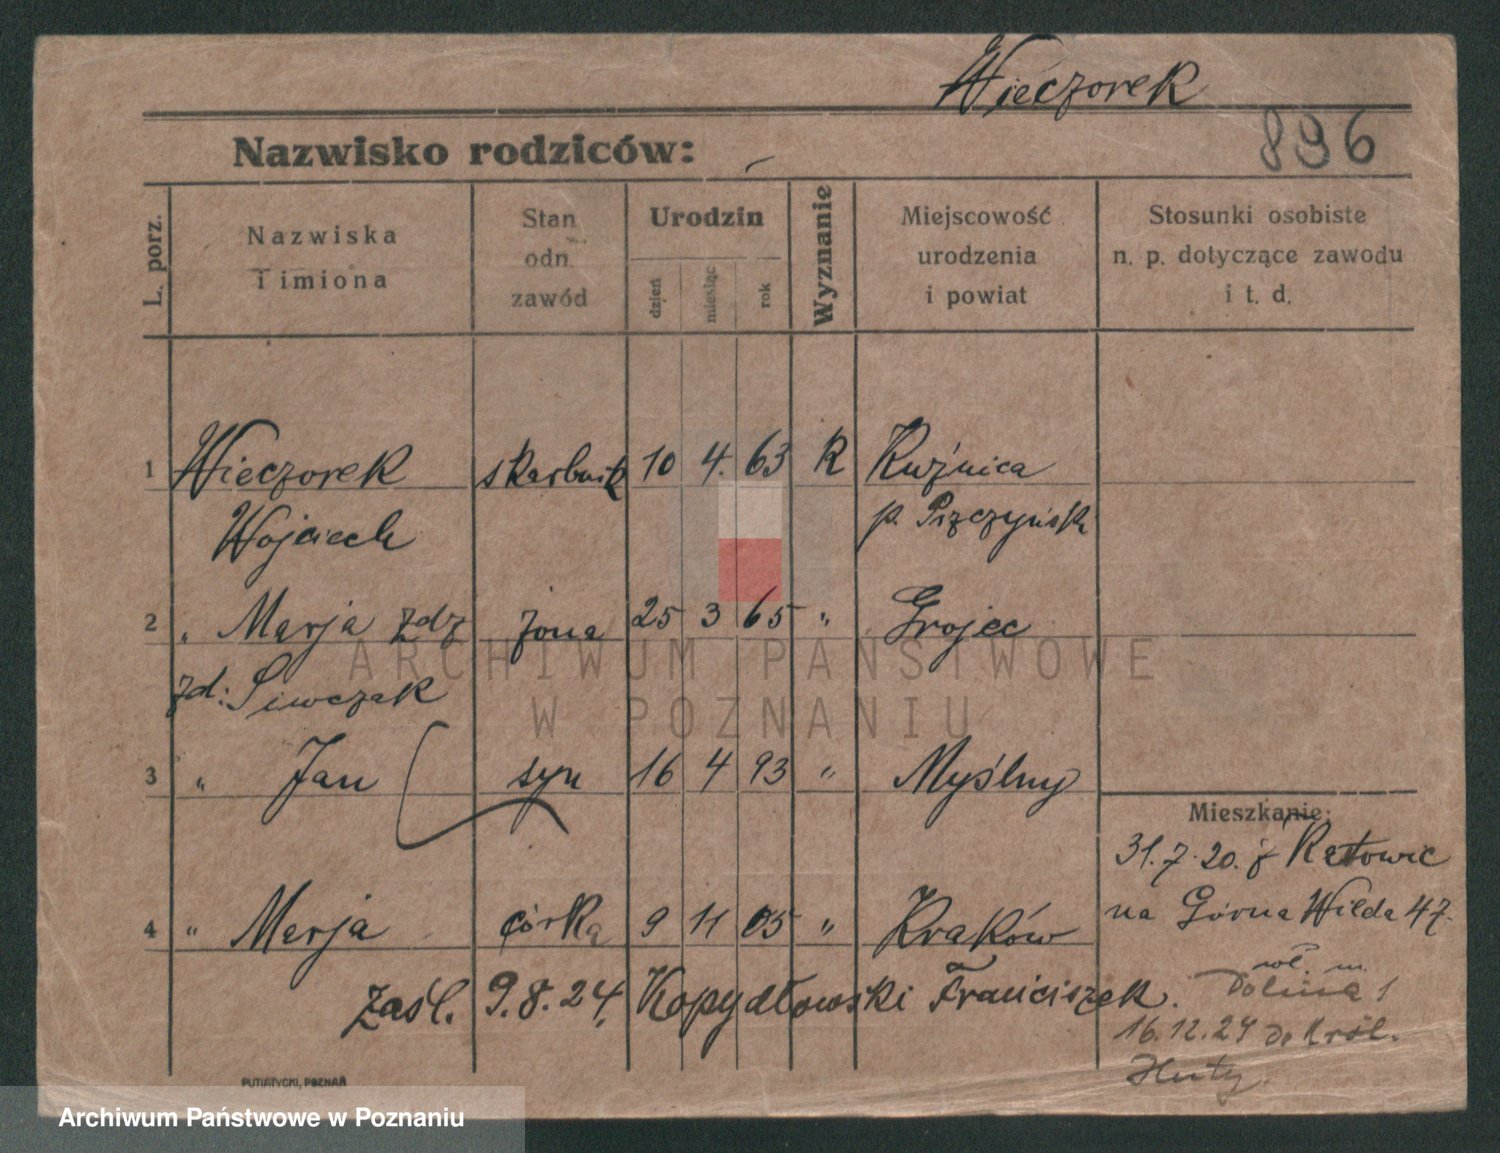 Wieczorek
896
Nazwisko rodziców: –
L. porz. Nazwiska i imiona Stan odn. zawód Urodzin dzień miesiąc rok Wyznanie Miejscowość urodzenia i powiat Stosunki osobiste n. p. dotyczące zawodu i t. d.
1 Wieczorek skarbnik 10 4. 63 R Kuźnica
Wojciech p.
2 " Marja zdz żona 25 3 65 " Grojec
zd: Siwczak
3 " Jan syn 16 4 93 " Myślny
Mieszkanie:
31.7.20. z Katowic
4 " Marja córka 9 11 05 " Kraków
na Górna Wilda 47.
zaśl. 9.8.24. Kopydłowski Franciszek.
Dolina 1
16.12.24 do Król.
Huty.
PUTIATYCKI, POZNAŃ
ARCHIWUM PAŃSTWOWE
W POZNANIU
Archiwum Państwowe w Poznaniu